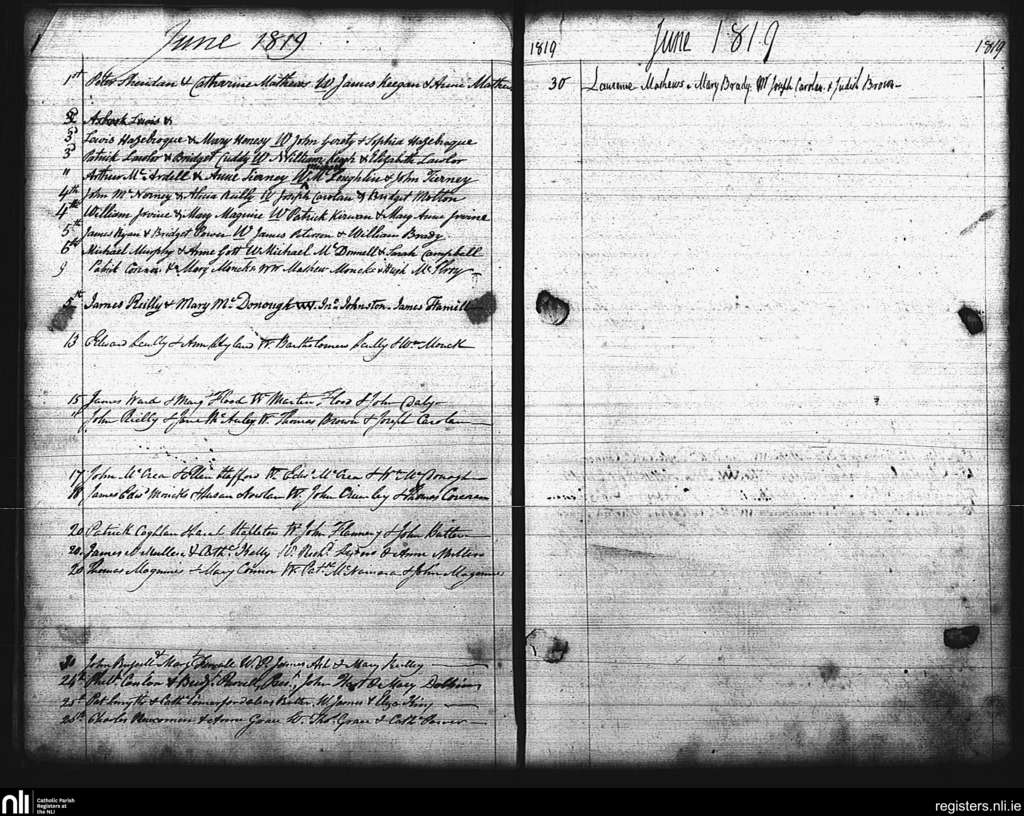 June 1819
1st Peter Sheridan & Catharine Mathews W James Keegan & Anne Mathews
Lewis &
3d Lewis Hazebroque & Mary Honesy W John Geraty & Sophia Hazebroque
3d Patrick Lawlor & Bridget Cuddy W William Keogh & Elizabeth Lawlor
" Arthur McArdell & Anne Tierney W McLoughlin & John Tierney
4th John McNorney & Alicia Reilly W Joseph Carolan & Bridget Molton
4th William Irvine & Mary Maguire W Patrick Kirwan & Mary Anne Irvine
5th James Ryan & Bridget Power W James Peterson & William Brady
6th Michael Murphy & Anne Gott W Michael McDonnell & Sarah Campbell
9 Patrick Connor & Mary Monck WW Mathew Moncks & Hugh McElroy
5th James Reilly & Mary McDonough W Jno Johnston James Hamill
13 Edward Scully & Ann Hyland W Bartholomew Scully & Wm Monck
15 James Ward & Mary Flood W Martin Flood & John Daly
" John Reilly & Jane McAuley W. Thomas Brown & Joseph Carolan
17 John McCrea & Ellen Stafford W. Edwd McCrea & Wm McDonogh
18 James Edwd Moncks & Susan Nowlan W. John Crumley & Thomas Corcoran
20 Patrick Coghlan & Stapleton W John Flannery & John
20. James & Cathe Kelly W Richd & Anne Mullins
20 Thomas Maguire & Mary Connor W. Patk McNamara & John Maguire
John Russell & Mary W. James Ash & Mary Kelley
24th Conlon & Bridgt John & Mary Dobbins
25th Pat Smyth & Cathe alias Butler W James & Eliza King
26th Charles & Anne Grace W. Thos Grace & Cathe
1819 June 1819 1819
30 Laurence Mathews & Mary Brady. W Joseph Carolan. & Judith Brown
nli Catholic Parish
Registers at
the NLI
registers.nli.ie